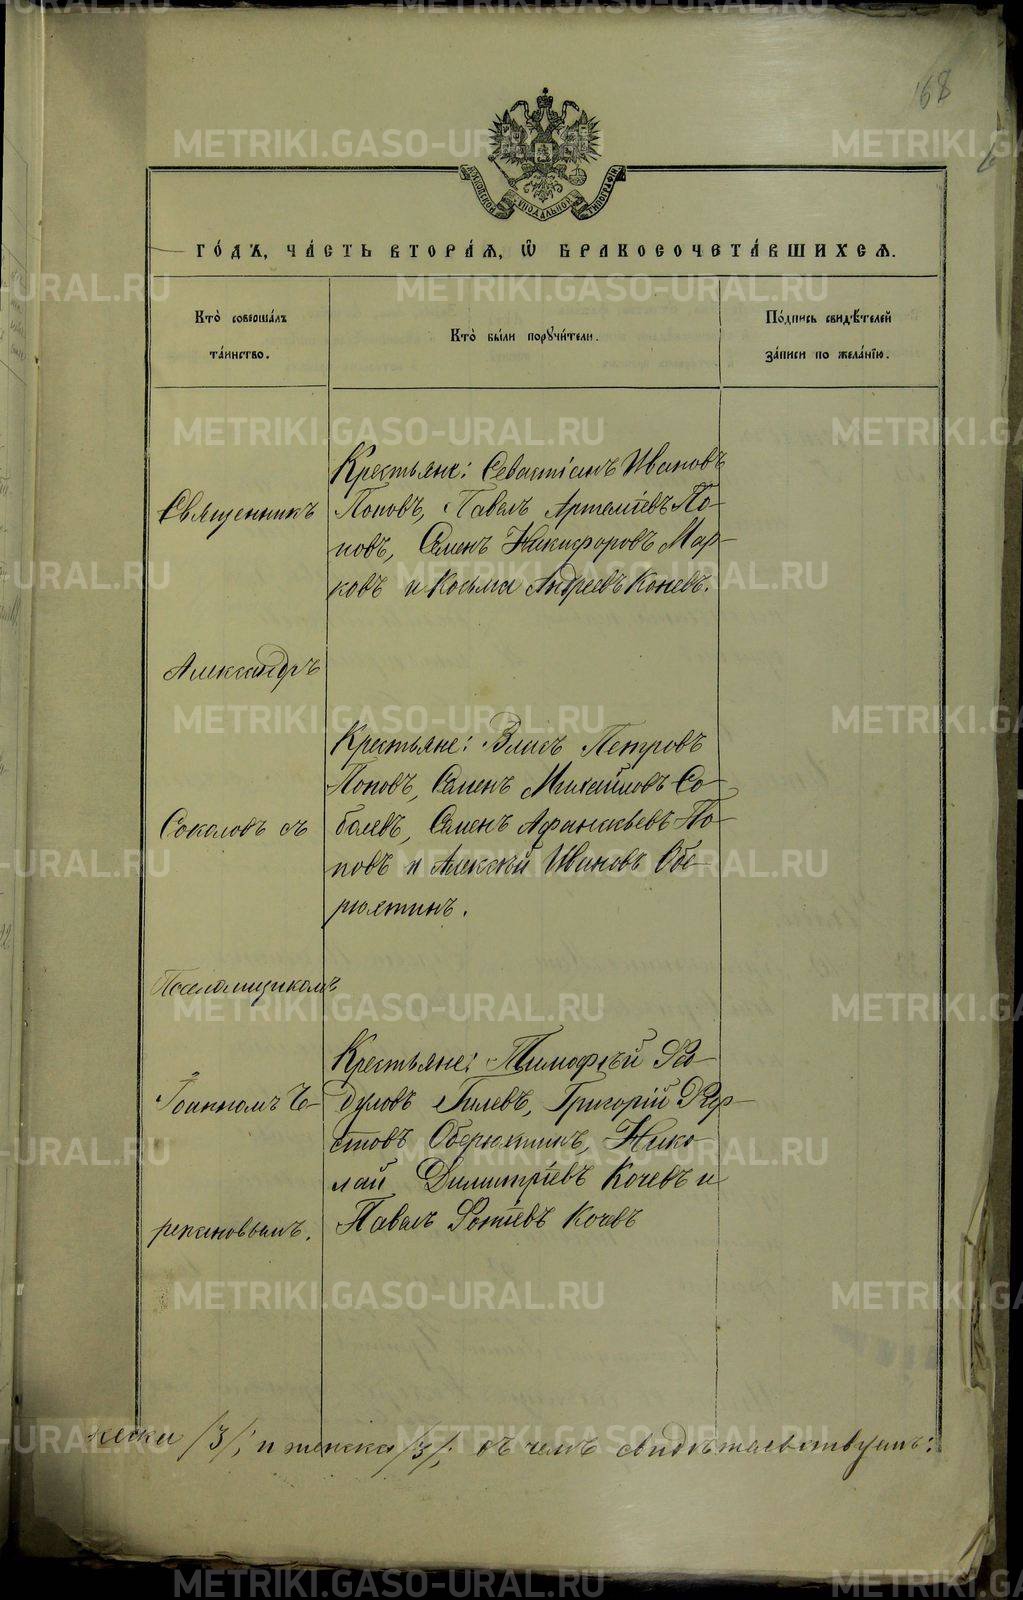 168
МОСКОВСКОЙ СѴНОДАЛЬНОЙ ТИПОГРАФІИ
ГО́ДЪ, ЧА́СТЬ ВТОРА́Ѧ, Ѽ БРАКОСОЧЕТА́ВШИХСѦ.
Кто̀ соверша́лъ
та́инство.
Кто̀ бы́ли порꙋчи́тели.
По́дпись свидѣ́телей
за́писи по жела́нїю.
Священникъ
Александръ
Соколовъ съ
Псаломщикомъ
Іоанномъ Че-
репановымъ.
Крестьяне: Севастіанъ Ивановъ
Поповъ, Павелъ Артеміевъ По-
повъ, Семенъ Никифоровъ Мар-
ковъ и Косьма Андреевъ Коневъ.
Крестьяне: Власъ Петровъ
Поповъ, Семенъ Михайловъ Со-
болевъ, Семенъ Афанасьевъ По-
повъ и Алексѣй Ивановъ Обе-
рюхтинъ.
Крестьяне: Тимофѣй Ра-
дуловъ Гилевъ, Григорій
Оберюхтинъ, Нико-
лай Димитріевъ Кочевъ и
Павелъ Фотіевъ Кочевъ
/3/, и женска /3/, въ чемъ свидѣтельствуютъ:
METRIKI.GASO-URAL.RU